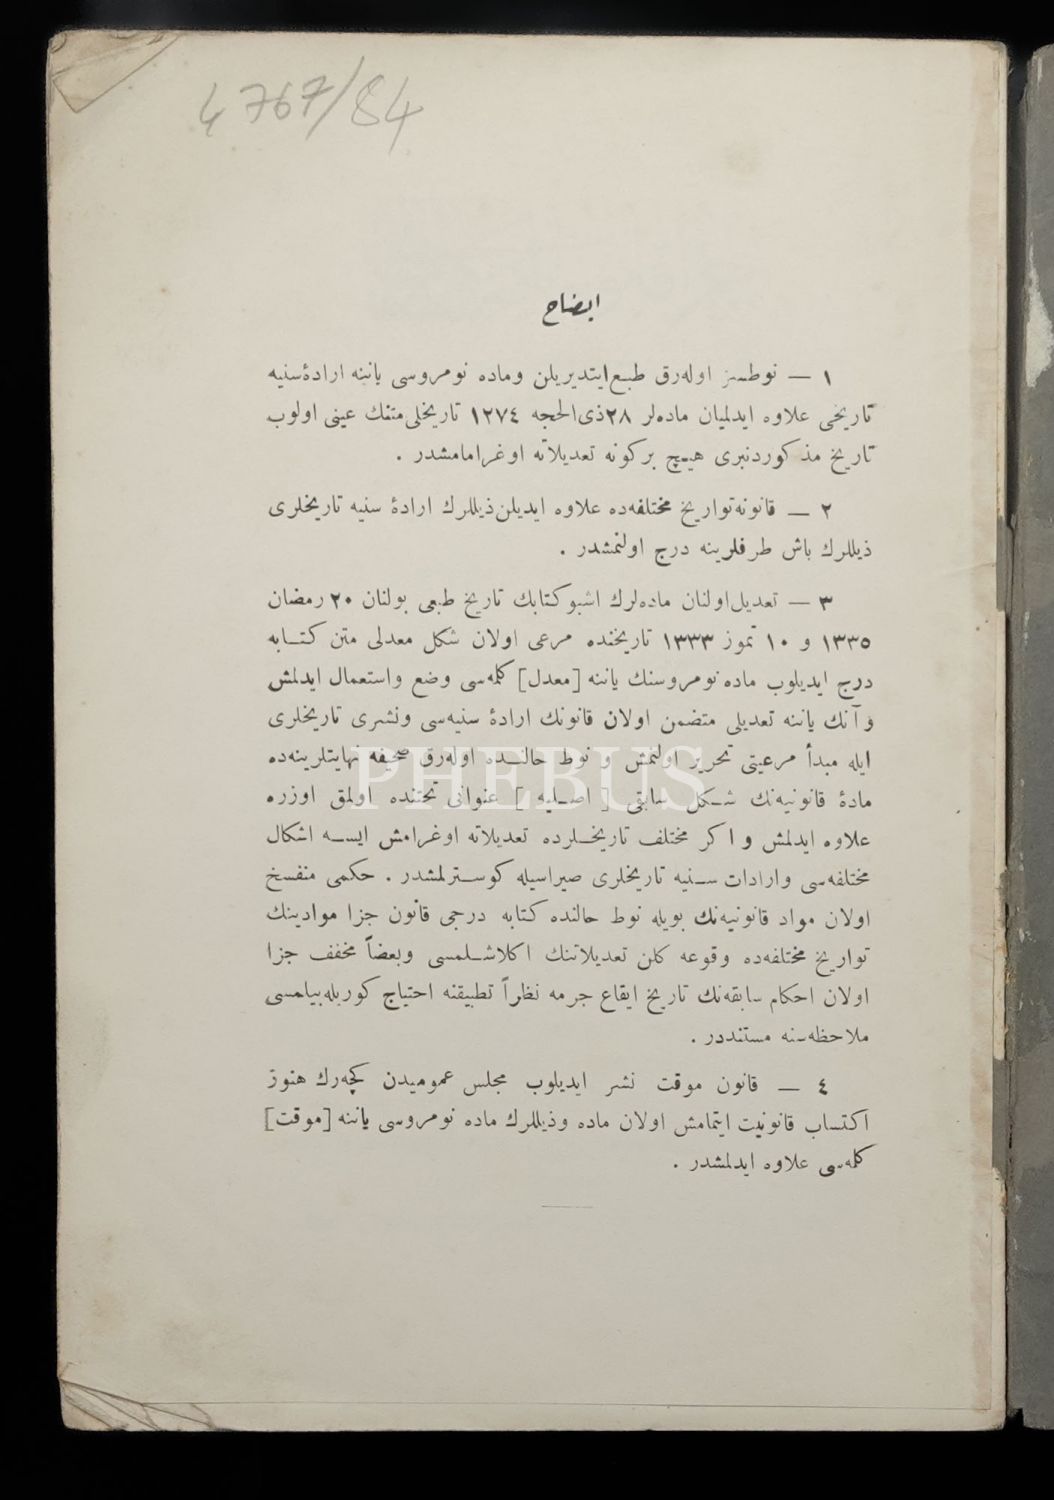 4767/84
ایضاح
١ — نوطسز اوله‌رق طبع ایتدیریلن وماده نومروسی یاننه ارادۀ سنیه
تاریخی علاوه ایدلمیان ماده‌لر ٢٨ ذی الحجه ١٢٧٤ تاریخلی متنك عینی اولوب
تاریخ مذكوردنبری هیچ بركونه تعدیلاته اوغرامامشدر .
٢ — قانونه تواریخ مختلفه‌ده علاوه ایدیلن ذیللرك ارادۀ سنیه تاریخلری
ذیللرك باش طرفلرینه درج اولنمشدر .
٣ — تعدیل اولنان ماده‌لرك اشبو كتابك تاریخ طبعی بولنان ٢٠ رمضان
١٣٣٥ و ١٠ تموز ١٣٣٣ تاریخنده مرعی اولان شكل معدلی متن كتابه
درج ایدیلوب ماده نومروسنك یاننه [معدل] كلمه‌سی وضع واستعمال ایدلمش
و آنك یاننه تعدیلی متضمن اولان قانونك ارادۀ سنیه‌سی ونشری تاریخلری
ایله مبدأ مرعیتی تحریر اولنمش و نوط حالنده اوله‌رق صحیفه نهایتلرینه‌ده
مادۀ قانونیه‌نك شكل سابقی [ اصلیه ] عنوانی تحتنده اولمق اوزره
علاوه ایدلمش و اكر مختلف تاریخلرده تعدیلاته اوغرامش ایسه اشكال
مختلفه‌سی وارادات سنیه تاریخلری صیراسیله كوسترلمشدر . حكمی منفسخ
اولان مواد قانونیه‌نك بویله نوط حالنده كتابه درجی قانون جزا موادینك
تواریخ مختلفه‌ده وقوعه كلن تعدیلاتنك اكلاشلمسی وبعضاً مخفف جزا
اولان احكام سابقه‌نك تاریخ ایقاع جرمه نظراً تطبیقنه احتیاج كوریله‌بیلمسی
ملاحظه‌سنه مستنددر .
٤ — قانون موقت نشر ایدیلوب مجلس عمومیدن كچه‌رك هنوز
اكتساب قانونیت ایتمامش اولان ماده وذیللرك ماده نومروسی یاننه [موقت]
كلمه‌سی علاوه ایدلمشدر .
PHEBUS